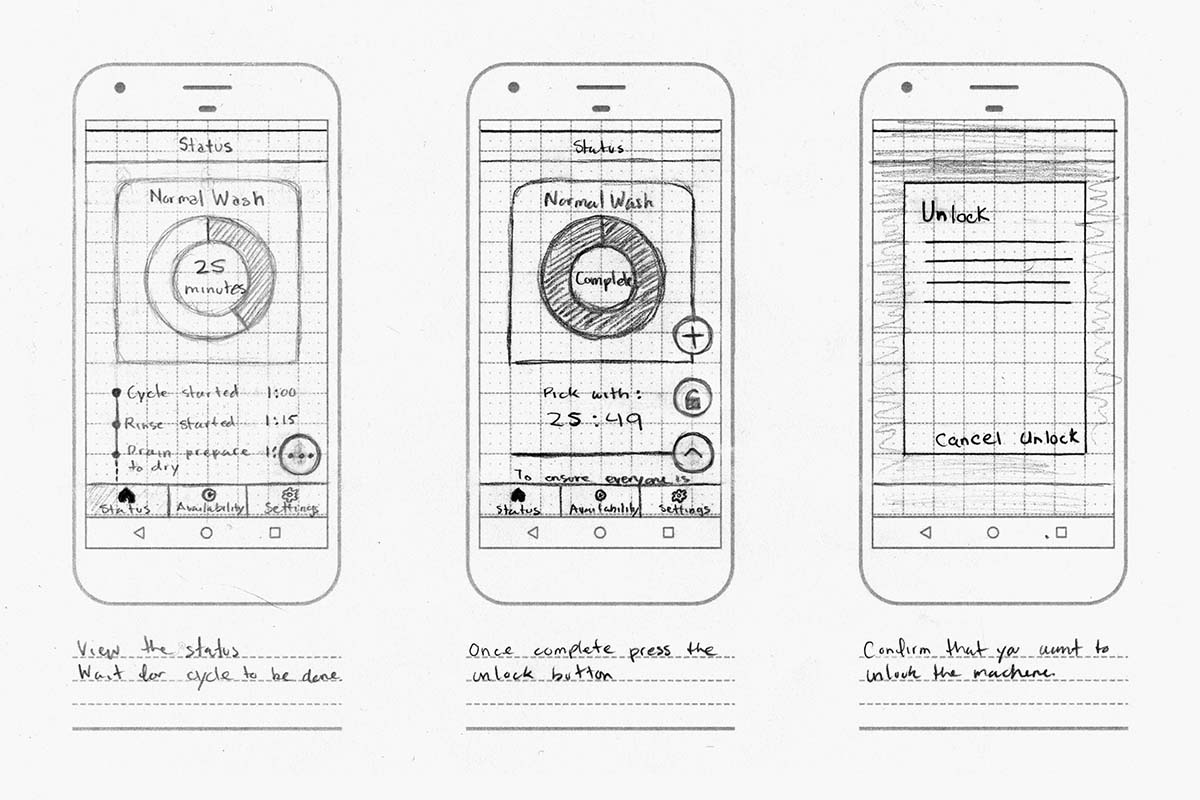 Status
Normal Wash
25
minutes
Cycle started 1:00
Rinse started 1:15
Drain prepare 1:
to dry
Status Availability Settings
View the status
Wait for cycle to be done.
Status
Normal Wash
Complete
Pick with:
25:49
To ensure everyone is
Status Availability Settings
Once complete press the
unlock button
Unlock
Cancel Unlock
Confirm that you want to
unlock the machine.